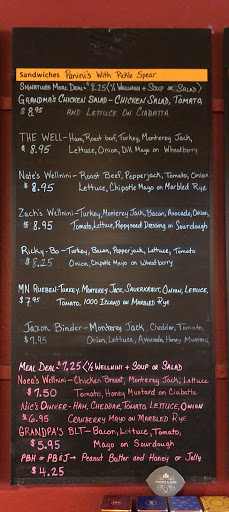 Sandwiches Panini's With Pickle Spear
Signature Meal Deal - 8.25 (½ Wellnini + Soup or Salad)
Grandma's Chicken Salad - Chicken Salad, Tomato,
$8.95 and Lettuce on Ciabatta
THE WELL - Ham, Roast beef, Turkey, Monterey Jack,
$8.95 Lettuce, Onion, Dill Mayo on Wheatberry
Nate's Wellnini - Roast Beef, Pepperjack, Tomato, Onion
$8.95 Lettuce, Chipotle Mayo on Marbled Rye
Zach's Wellnini - Turkey, Monterey Jack, Bacon, Avocado, Onion,
$8.95 Tomato, Lettuce, Poppyseed Dressing on Sourdough
Ricky-Bo - Turkey, Bacon, Pepperjack, Lettuce, Tomato
$8.25 Onion, Chipotle Mayo on Wheatberry
MN Rueben - Turkey, Monterey Jack, Sauerkraut, Onion, Lettuce,
$7.95 Tomato, 1000 Island on Marbled Rye
Jaxon Binder - Monterey Jack, Cheddar, Tomato,
$7.95 Onion, Lettuce, Avocado, Honey Mustard
Meal Deal - $7.25 (½ Wellnini + Soup or Salad
Nora's Wellnini - Chicken Breast, Monterey Jack, Lettuce
$7.50 Tomato, Honey Mustard on Ciabatta
Nic's Oinker - Ham, Cheddar, Tomato, Lettuce, Onion
$6.95 Cranberry Mayo on Marbled Rye
GRANDPA'S BLT - Bacon, Lettuce, Tomato,
$5.95 Mayo on Sourdough
PBH or PB&J → Peanut Butter and Honey or Jelly
$4.25